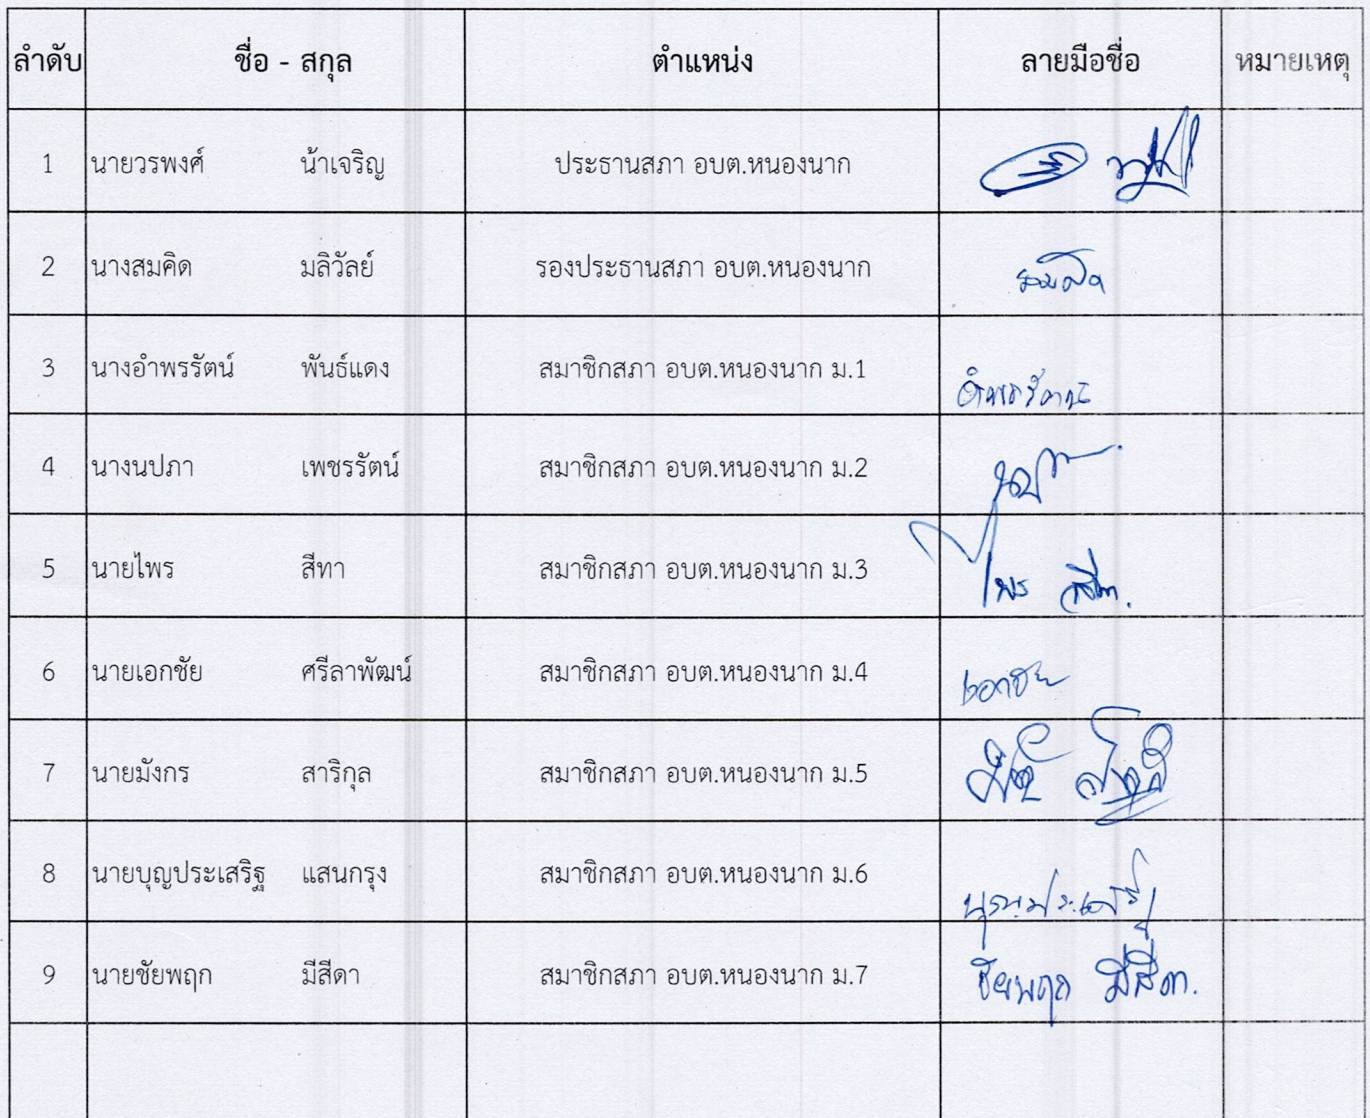 ลำดับ ชื่อ - สกุล ตำแหน่ง ลายมือชื่อ หมายเหตุ
1 นายวรพงศ์ น้าเจริญ ประธานสภา อบต.หนองนาก
2 นางสมคิด มลิวัลย์ รองประธานสภา อบต.หนองนาก สมคิด
3 นางอำพรรัตน์ พันธ์แดง สมาชิกสภา อบต.หนองนาก ม.1 อำพรรัตน์
4 นางนปภา เพชรรัตน์ สมาชิกสภา อบต.หนองนาก ม.2
5 นายไพร สีทา สมาชิกสภา อบต.หนองนาก ม.3 ไพร สีทา
6 นายเอกชัย ศรีลาพัฒน์ สมาชิกสภา อบต.หนองนาก ม.4 เอกชัย
7 นายมังกร สาริกุล สมาชิกสภา อบต.หนองนาก ม.5
8 นายบุญประเสริฐ แสนกรุง สมาชิกสภา อบต.หนองนาก ม.6 บุญประเสริฐ
9 นายชัยพฤก มีสีดา สมาชิกสภา อบต.หนองนาก ม.7 ชัยพฤก มีสีดา